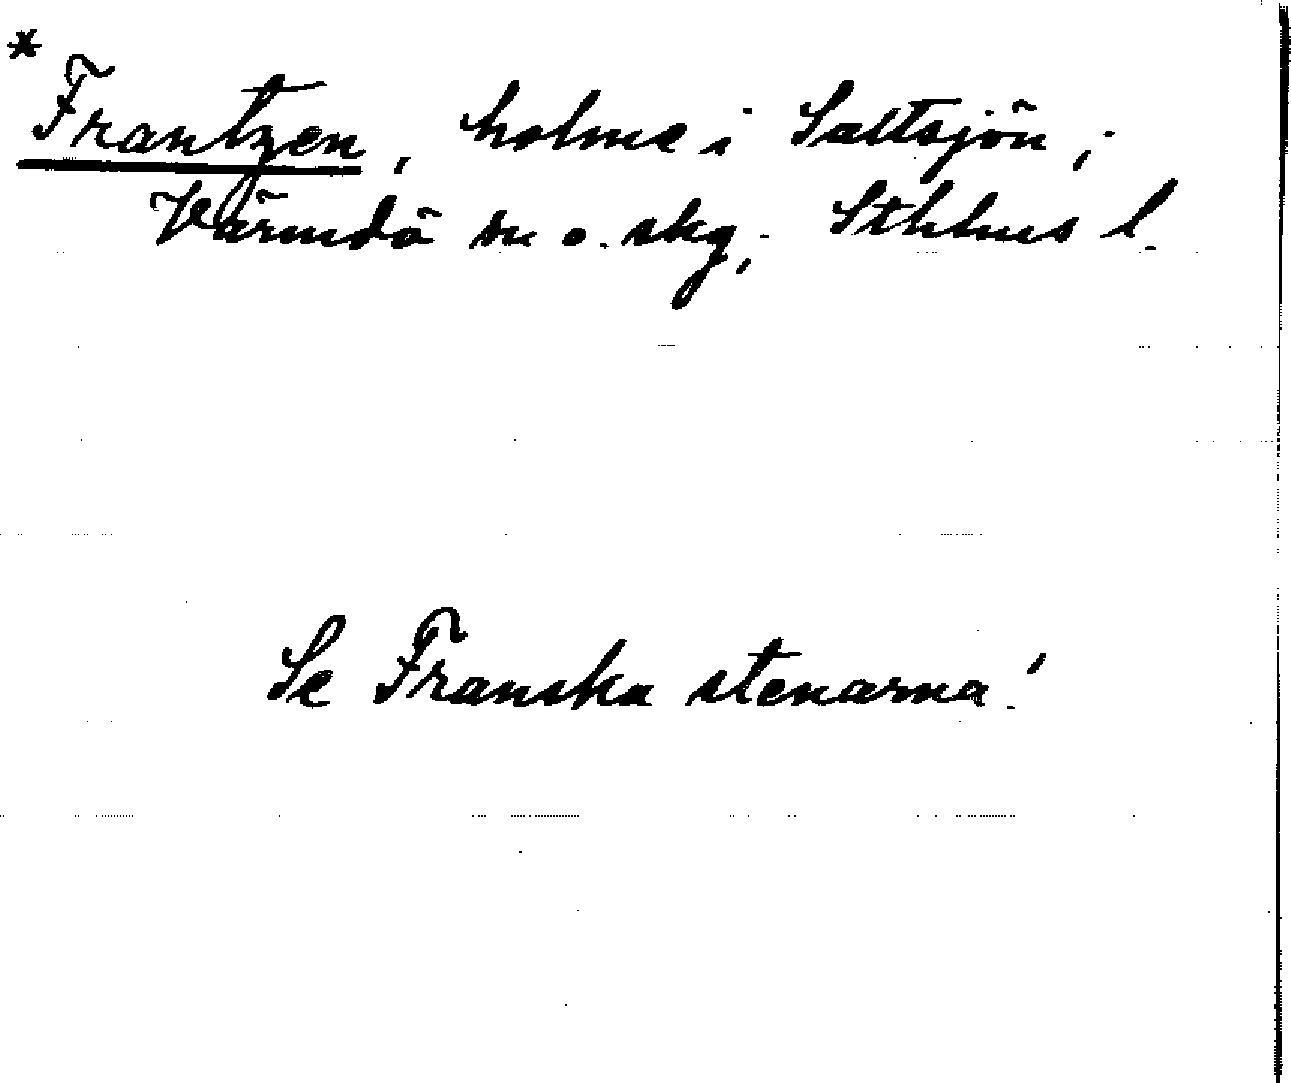 * Frantzen, holme i Saltsjön,
Värmdö sn o. skg, Sthlms l.
Se Franska stenarna!